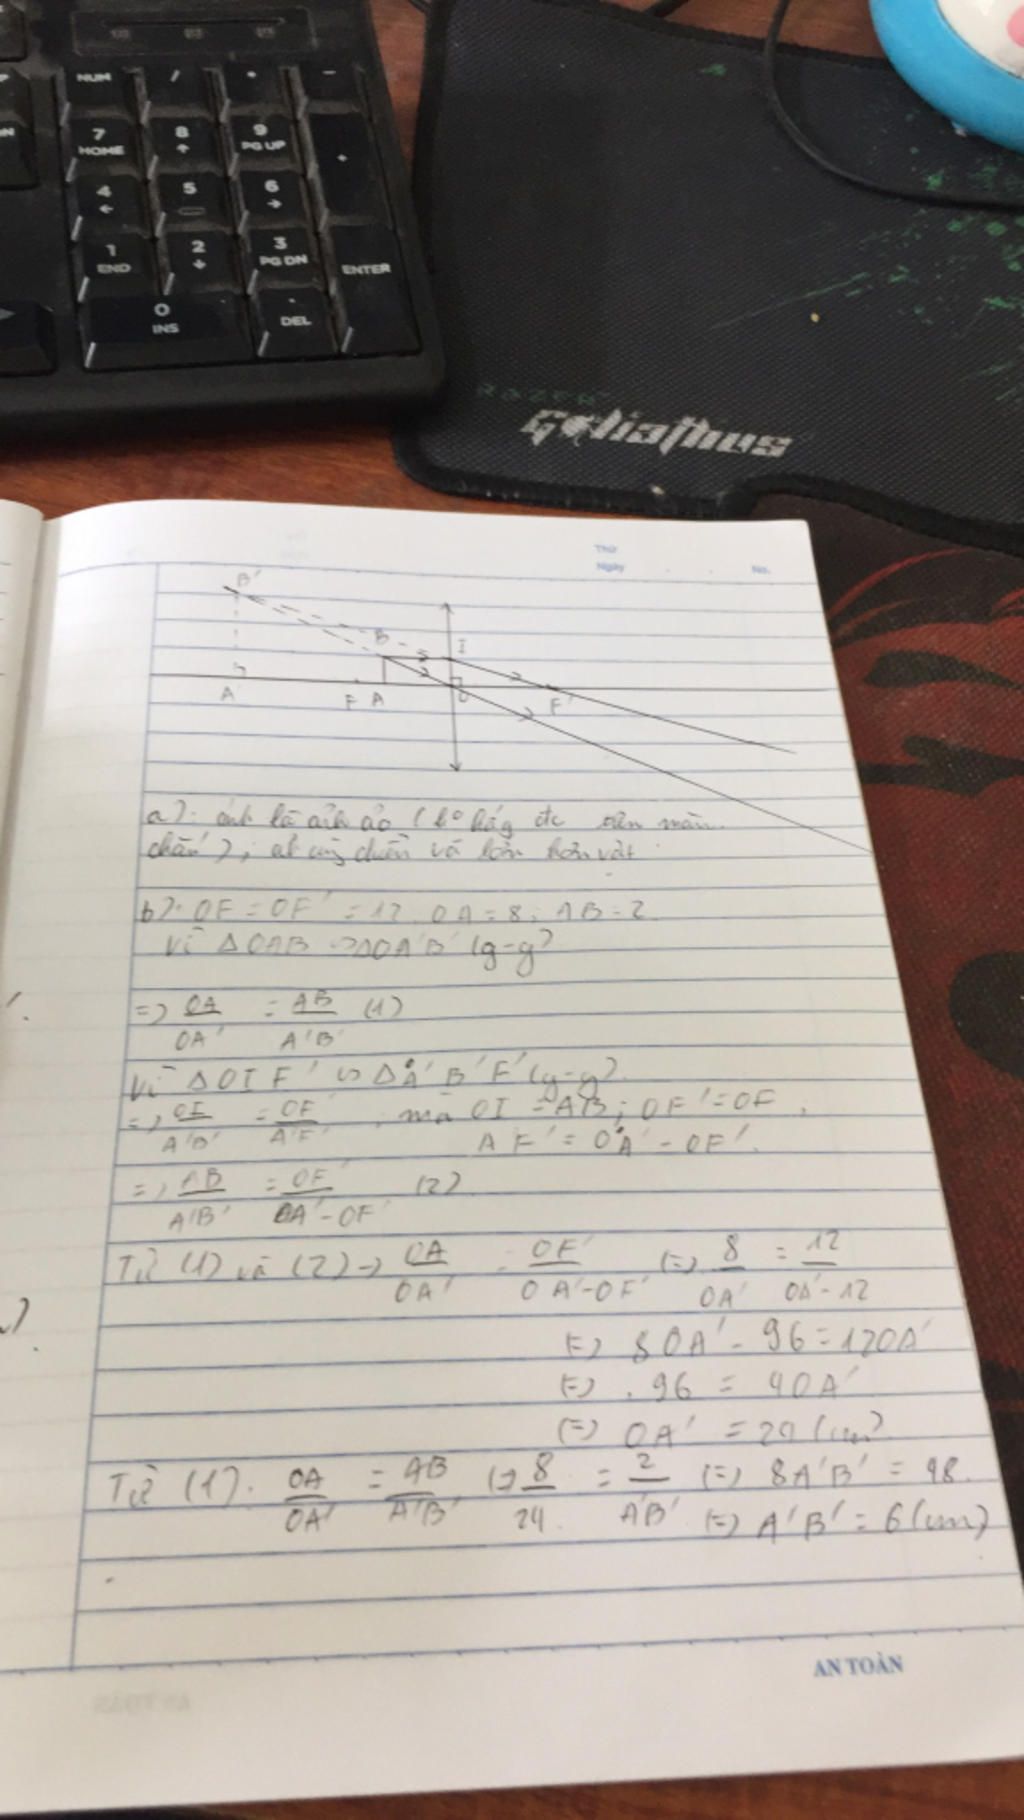 NUM / * -
7 HOME 8 9 PG UP +
4 5 6
1 END 2 3 PG DN ENTER
0 INS . DEL
RAZER
Goliathus
Thứ
Ngày No.
B'
B I
A' F A O F'
a): ảnh là ảnh ảo ( trên màn
chắn ), chiều và lớn hơn vật
b): OF = OF' = 12. OA = 8; AB = 2
Vì Δ OAB ∽ ΔOA'B' (g-g)
=> OA/OA' = AB/A'B' (1)
Vì Δ OIF' ∽ Δ A'B'F' (g-g)
=> OI/A'B' = OF'/A'F' , mà OI = AB; OF' = OF,
A F' = OA' - OF'.
=> AB/A'B' = OF'/OA'-OF' (2)
Từ (1) và (2) -> OA/OA' = OF'/OA'-OF' (=) 8/OA' = 12/OA'-12
(=) 8OA' - 96 = 12OA'
(=) . 96 = 4OA'
(=) OA' = 24 (cm)
Từ (1). OA/OA' = AB/A'B' (=) 8/24 = 2/A'B' (=) 8A'B' = 48.
(=) A'B' = 6 (cm)
AN TOÀN